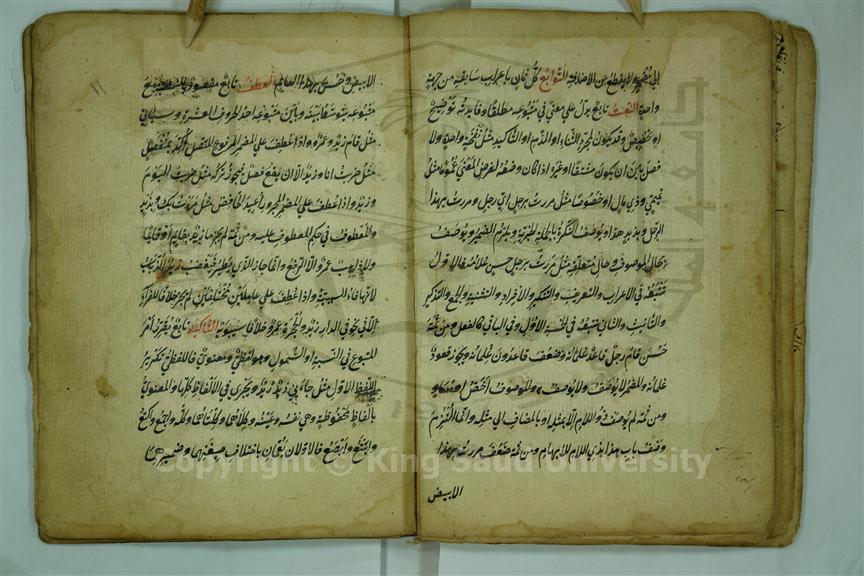 الي مضمر ولا يقطع عن الاضافة التوابع كل ثان باعراب سابقه من جهة
واحدة النعت تابع يدل علي معني في متبوعه مطلقا وفايدته توضيح
او تخصيص وقد يكون لمجرد الثناء او الذم او التاكيد مثل نفخة واحدة ولا
فصل بين ان يكون مشتقا او غيره اذا كان وضعه لغرض المعني عموما مثل
تميمي وذي مال او خصوصا مثل مررت برجل اي رجل ومررت بهذا
الرجل وبزيد هذا وتوصف النكرة بالجملة الخبرية ويلزم الضمير ويوصف
بحال الموصوف وحال متعلقه مثل مررت برجل حسن غلامه فالاول
يتبعه في الاعراب والتعريف والتنكير والافراد والتثنية والجمع والتذكير
والتانيث والثاني يتبعه في الخمسة الاول وفي الباقي كالفعل ومن ثمة
حسن قام رجل قاعد غلمانه وضعف قاعدون غلمانه ويجوز قعود
غلمانه والمضمر لا يوصف ولا يوصف به والموصوف اخص او مساو
ومن ثمة لم يوصف ذو اللام الا بمثله او بالمضاف الي مثله وانما التزم
وصف باب هذا بذي اللام للابهام ومن ثمة ضعف مررت بهذا
الابيض
الابيض وحسن بهذا العالم العطف تابع مقصود بالنسبة مع
متبوعه يتوسط بينه وبين متبوعه احد الحروف العشرة وسياتي
مثل قام زيد وعمرو واذا عطف علي المضمر المرفوع المتصل اكد بمنفصل
مثل ضربت انا وزيد الا ان يقع فصل فيجوز تركه مثل ضربت اليوم
وزيد واذا عطف علي المضمر المجرور اعيد الخافض مثل مررت بك وبزيد
والمعطوف في حكم المعطوف عليه ومن ثمة لم يجز ما زيد بقايم او قايما
ولا ذاهب عمرو الا الرفع وانما جاز الذي يطير فيغضب زيد الذباب
لانها فاء السببية واذا عطف علي عاملين مختلفين لم يجز خلافا للفراء
الا في نحو في الدار زيد والحجرة عمرو خلافا لسيبويه التاكيد تابع يقرر امر
المتبوع في النسبة او الشمول وهو لفظي ومعنوي فاللفظي تكرير
اللفظ الاول مثل جاءني زيد زيد ويجري في الالفاظ كلها والمعنوي
بالفاظ محفوظة وهي نفسه وعينه وكلاهما وكلتاهما وكله واجمع واكتع
وابتع وابصع فالاولان يعمان باختلاف صيغتهما وضميرهما
Copyright © King Saud University